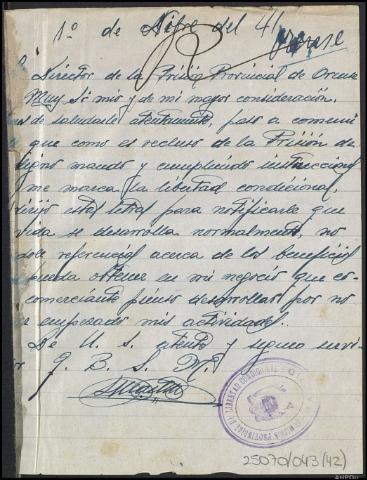 1º de Nbre del 41
Orense
Director de la Prisión Provincial de Orense
Muy Sr mio y de mi mayor consideración,
de saludarle atentamente, paso a comuni
que como ex recluso de la Prisión de
digno mando y cumpliendo instruccione
me marca la libertad condicional,
dirijo estas letras para notificarle que
vida se desarrolla normalmente, no
dole referencias acerca de los beneficios
pueda obtener en mi negocio que co-
comerciante pienso desarrollar por no
r empezado mis actividades.
De U. S. atento y seguro servi-
Q. B. S. M.
LIBERTAD CONDICIONAL
25070/043(42)
AHPOu